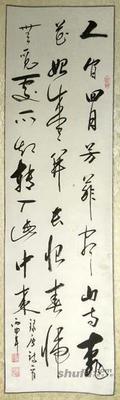 人间四月芳菲尽山寺桃
花始盛开长恨春归
无觅处不知转入此中来
录唐诗一首